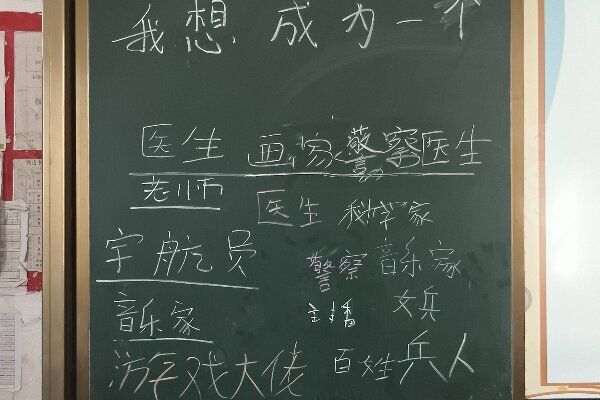 我想成为一个
医生 画家 警察 医生
老师
医生 科学家
宇航员
警察 音乐家
音乐家
主播 女兵
游戏大佬 百姓 兵人